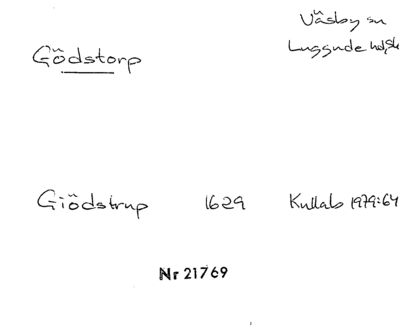 Väsby sn
Luggude hd, Sk
Gödstorp
Giödstrup 1629 Kullabo 1979:64
Nr 21769